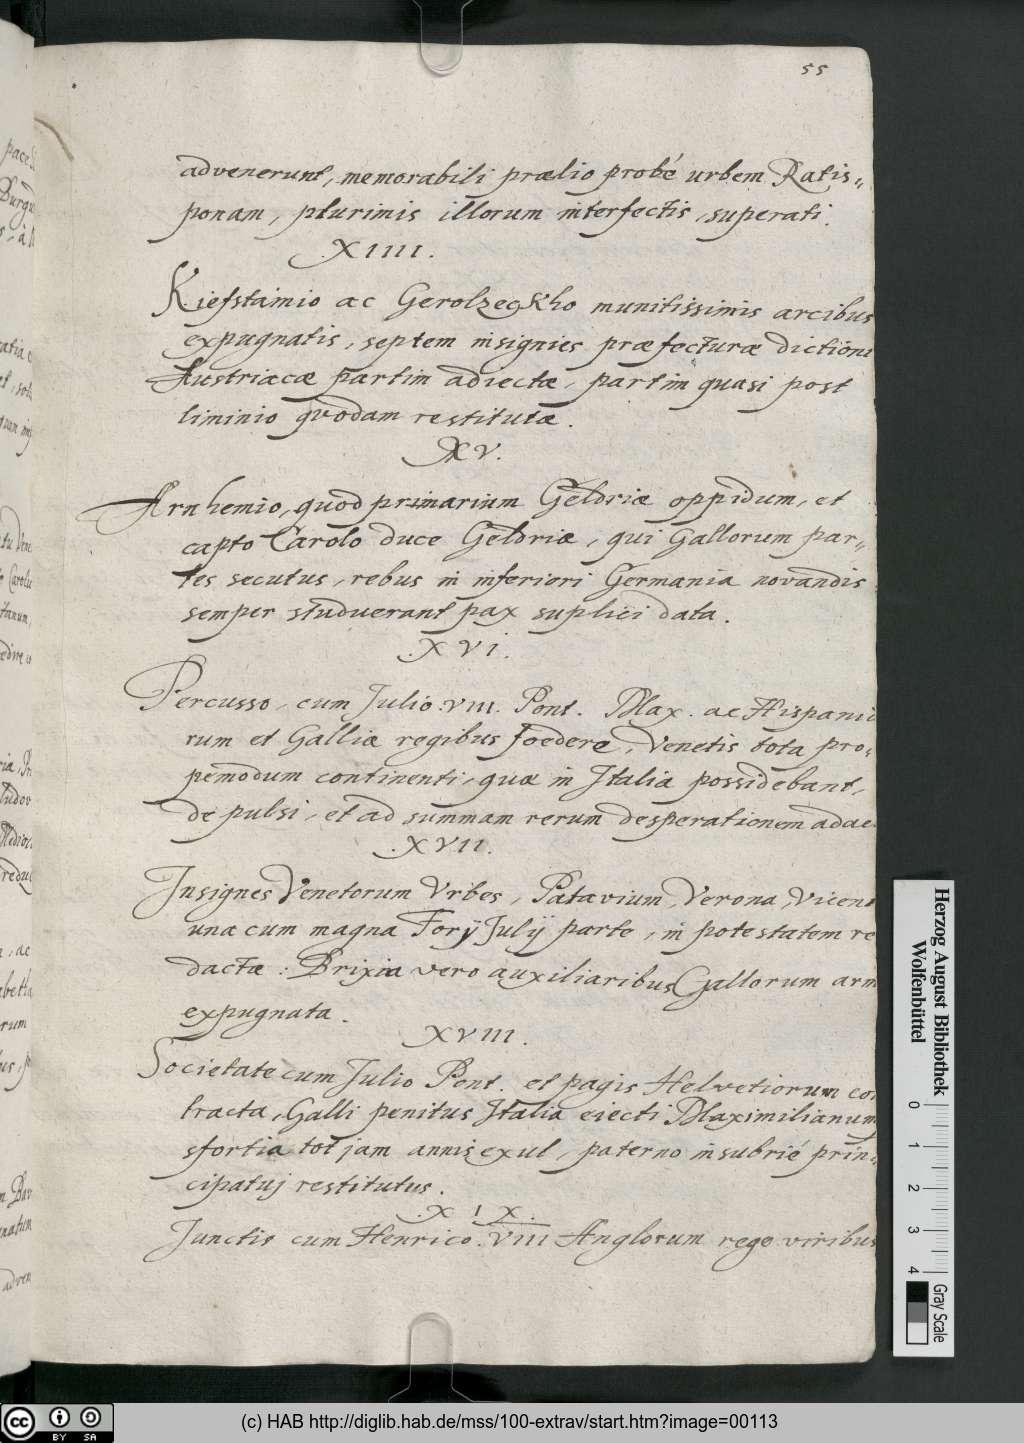 55
advenerunt, memorabili prælio probé urbem Ratis„
ponam, plurimis illorum interfectis, superati.
.XIIII.
Kiefstainio ac Gerolzegkho munitissimis arcibus
expugnatis, septem insignies præfecturæ dictioni
Austriacæ partim adiectæ, partim quasi post
liminio quodam restitutæ.
XV.
Arnhemio, quod primarium Geldriæ oppidum, et
capto Carolo duce Geldriæ, qui Gallorum par„
tes secutus, rebus in inferiori Germania novandis
semper studuerant pax suplici data.
.XVI.
Percusso, cum Julio .VIII. Pont. Max. ac Hispanio
rum et Galliæ regibus foedere, Venetis tota pro„
pemodum continenti, quæ in Italia possidebant,
de pulsi, et ad summam rerum desperationem adac
.XVII.
Insignes Venetorum Vrbes, Patavium, Verona, Vicen
una cum magna Forij Julij parte, in potestatem re
dactæ : Brixia vero auxiliaribus Gallorum arm
expugnata.
XVIII.
Societate cum Julio Pont. et pagis Helvetiorum con
tracta, Galli penitus Italia eiecti Maximilianum
sfortia tot jam annis exul, paterno insubrié prin„
cipatuj restitutus.
.XIX.
Junctis cum Henrico .VIII Anglorum rege viribus
Herzog August Bibliothek
Wolfenbüttel
0 1 2 3 4
Gray Scale
cc BY SA
(c) HAB http://diglib.hab.de/mss/100-extrav/start.htm?image=00113